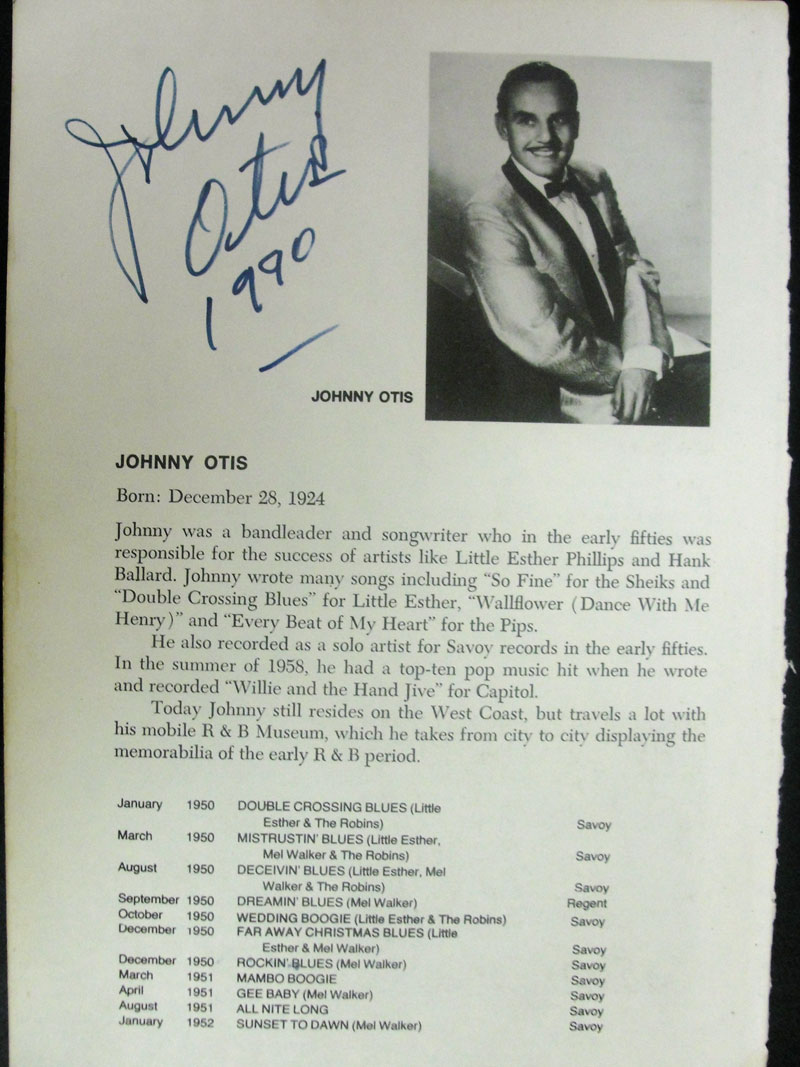 Johnny
Otis
1990
JOHNNY OTIS
JOHNNY OTIS
Born: December 28, 1924
Johnny was a bandleader and songwriter who in the early fifties was
responsible for the success of artists like Little Esther Phillips and Hank
Ballard. Johnny wrote many songs including “So Fine” for the Sheiks and
“Double Crossing Blues” for Little Esther, “Wallflower (Dance With Me
Henry)” and “Every Beat of My Heart” for the Pips.
He also recorded as a solo artist for Savoy records in the early fifties.
In the summer of 1958, he had a top-ten pop music hit when he wrote
and recorded “Willie and the Hand Jive” for Capitol.
Today Johnny still resides on the West Coast, but travels a lot with
his mobile R & B Museum, which he takes from city to city displaying the
memorabilia of the early R & B period.
January 1950 DOUBLE CROSSING BLUES (Little
Esther & The Robins) Savoy
March 1950 MISTRUSTIN' BLUES (Little Esther,
Mel Walker & The Robins) Savoy
August 1950 DECEIVIN' BLUES (Little Esther, Mel
Walker & The Robins) Savoy
September 1950 DREAMIN' BLUES (Mel Walker) Regent
October 1950 WEDDING BOOGIE (Little Esther & The Robins) Savoy
December 1950 FAR AWAY CHRISTMAS BLUES (Little
Esther & Mel Walker) Savoy
December 1950 ROCKIN' BLUES (Mel Walker) Savoy
March 1951 MAMBO BOOGIE Savoy
April 1951 GEE BABY (Mel Walker) Savoy
August 1951 ALL NITE LONG Savoy
January 1952 SUNSET TO DAWN (Mel Walker) Savoy